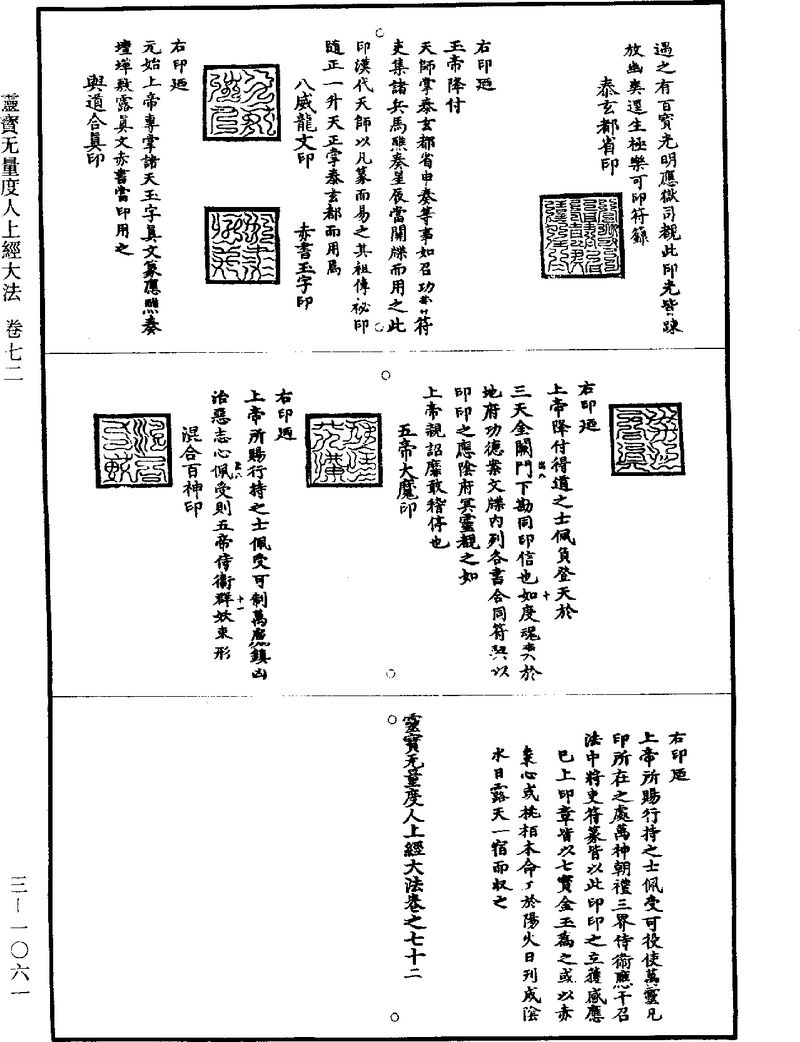 遇之有百寶光明應獄司覩此印光皆踈
放幽爽還生極樂可印符籙
泰玄都省印
右印廼
玉帝降付
天師掌泰玄都省申奏等事如召功曹符
吏集諸兵馬醮奏星辰當開牒而用之此
印漢代天師以凡篆而易之其祖傳秘印
隨正一升天正掌泰玄都而用焉
八威龍文印
赤書玉字印
右印廼
元始上帝專掌諸天玉字眞文篆應醮奏
壇墠敷露眞文赤書當印用之
與道合眞印
右印廼
上帝降付得道之士佩負登天於
三天金闕門下勘同印信也如度魂爽於
地府功德案文牒內列各書合同符契以
印印之應陰府冥靈覩之如
上帝親詔靡敢稽停也
五帝大魔印
右印廼
上帝所賜行持之士佩受可制萬魔鎮凶
治惡志心佩受則五帝侍衞群妖束形
混合百神印
右印廼
上帝所賜行持之士佩受可役使萬靈凡
印所在之處萬神朝禮三界侍衛應干召
法中將吏符篆皆以此印印之立獲感應
已上印章皆以七寶金玉爲之或以赤
棗心或桃栢木命刀於陽火日刋成陰
水日露天一宿而収之
靈寶无量度人上經大法卷之七十二
靈寶无量度人上經大法 卷七二
三—一〇六一